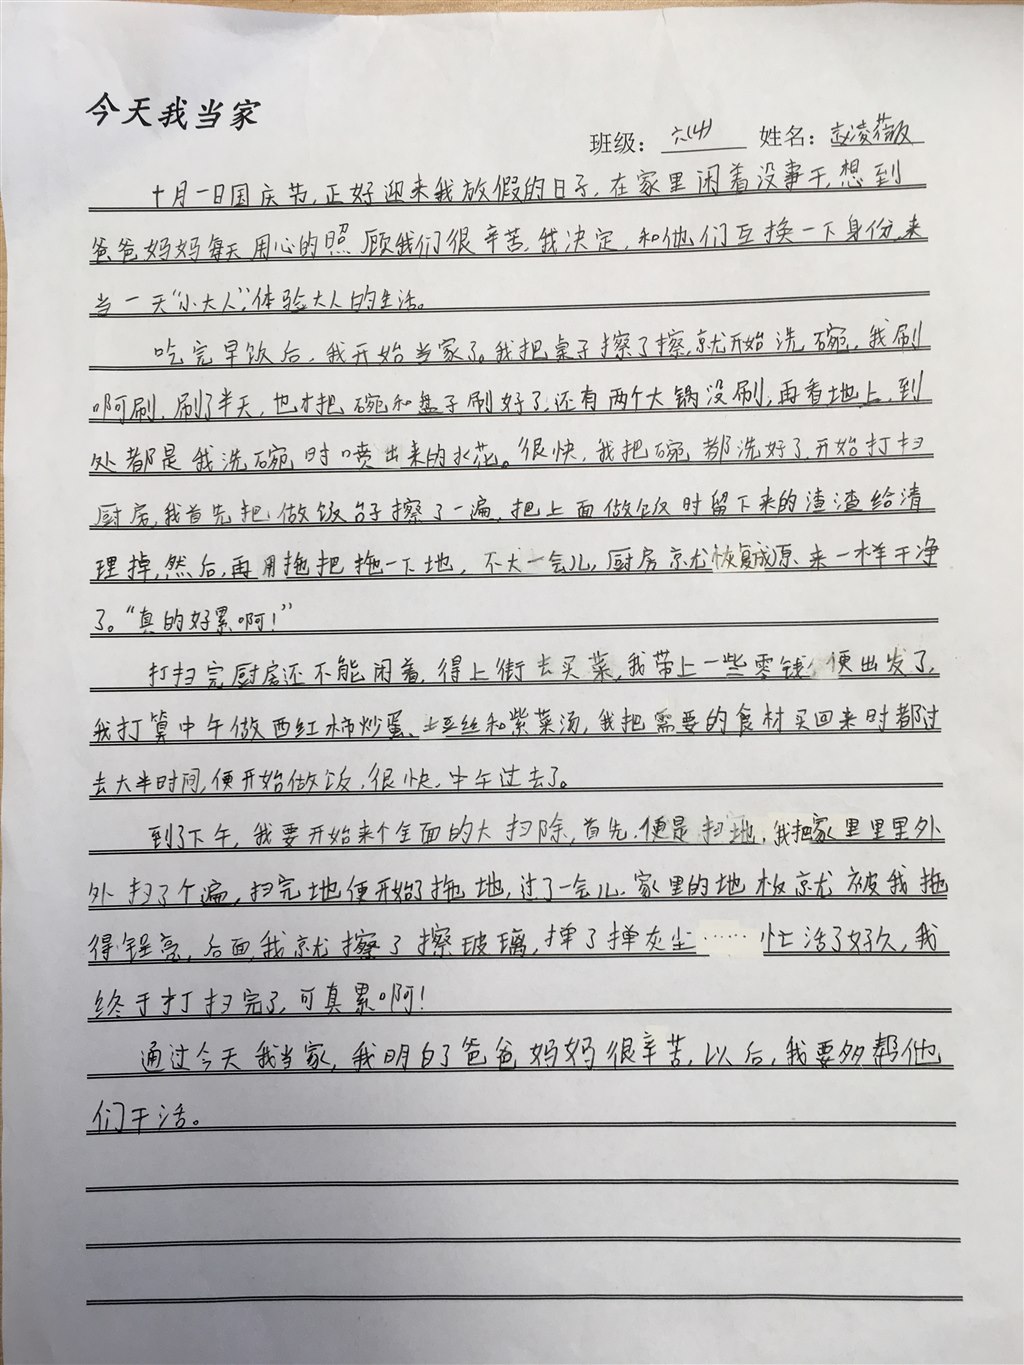 今天我当家
班级：六(4) 姓名：赵凌薇
十月一日国庆节,正好迎来我放假的日子,在家里闲着没事干,想到
爸爸妈妈每天用心的照顾我们很辛苦,我决定,和他们互换一下身份,来
当一天“小大人”,体验大人的生活。
吃完早饭后,我开始当家了。我把桌子擦了擦,就开始洗碗,我刷
啊刷,刷了半天,也才把碗和盘子刷好了,还有两个大锅没刷,再看地上,到
处都是我洗碗时喷出来的水花。很快,我把碗都洗好了,开始打扫
厨房,我首先把做饭台子擦了一遍,把上面做饭时留下来的渣渣给清
理掉,然后,再用拖把拖一下地,不大一会儿,厨房就恢复成原来一样干净
了。“真的好累啊!”
打扫完厨房还不能闲着,得上街去买菜,我带上一些零钱,便出发了,
我打算中午做西红柿炒蛋、土豆丝和紫菜汤,我把需要的食材买回来时都过
去大半时间,便开始做饭,很快,中午过去了。
到了下午,我要开始来个全面的大扫除,首先,便是扫地,我把家里里里外
外扫了个遍,扫完地便开始了拖地,过了一会儿,家里的地板就被我拖
得锃亮,后面,我就擦了擦玻璃,掸了掸灰尘……忙活了好久,我
终于打扫完了,可真累啊!
通过今天我当家,我明白了爸爸妈妈很辛苦,以后,我要多帮他
们干活。